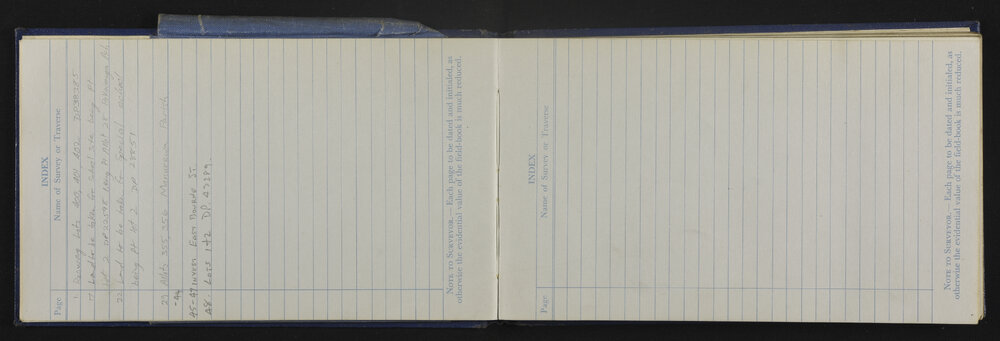 INDEX
Page Name of Survey or Traverse
1 Lots 400, 401, 402 DP
17 Land to be taken for school site being Pt
Lot 2 DP 22598 being Pt Allot 25 Ph
22 Land to be taken for
being Pt Lot 2 DP 28851
29 Allots 355, 356 Parish
-44
45-47 INVERS EAST BOURNE ST.
48. LOTS 1+2 DP. 47289.
NOTE TO SURVEYOR.— Each page to be dated and initialed, as
otherwise the evidential value of the field-book is much reduced.
INDEX
Page Name of Survey or Traverse
NOTE TO SURVEYOR.— Each page to be dated and initialed, as
otherwise the evidential value of the field-book is much reduced.